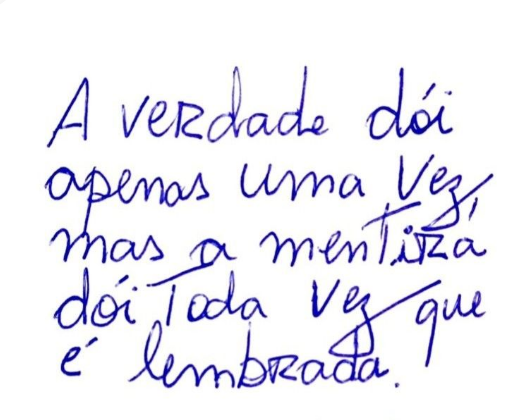 A verdade dói
apenas uma vez,
mas a mentira
dói toda vez que
é lembrada.